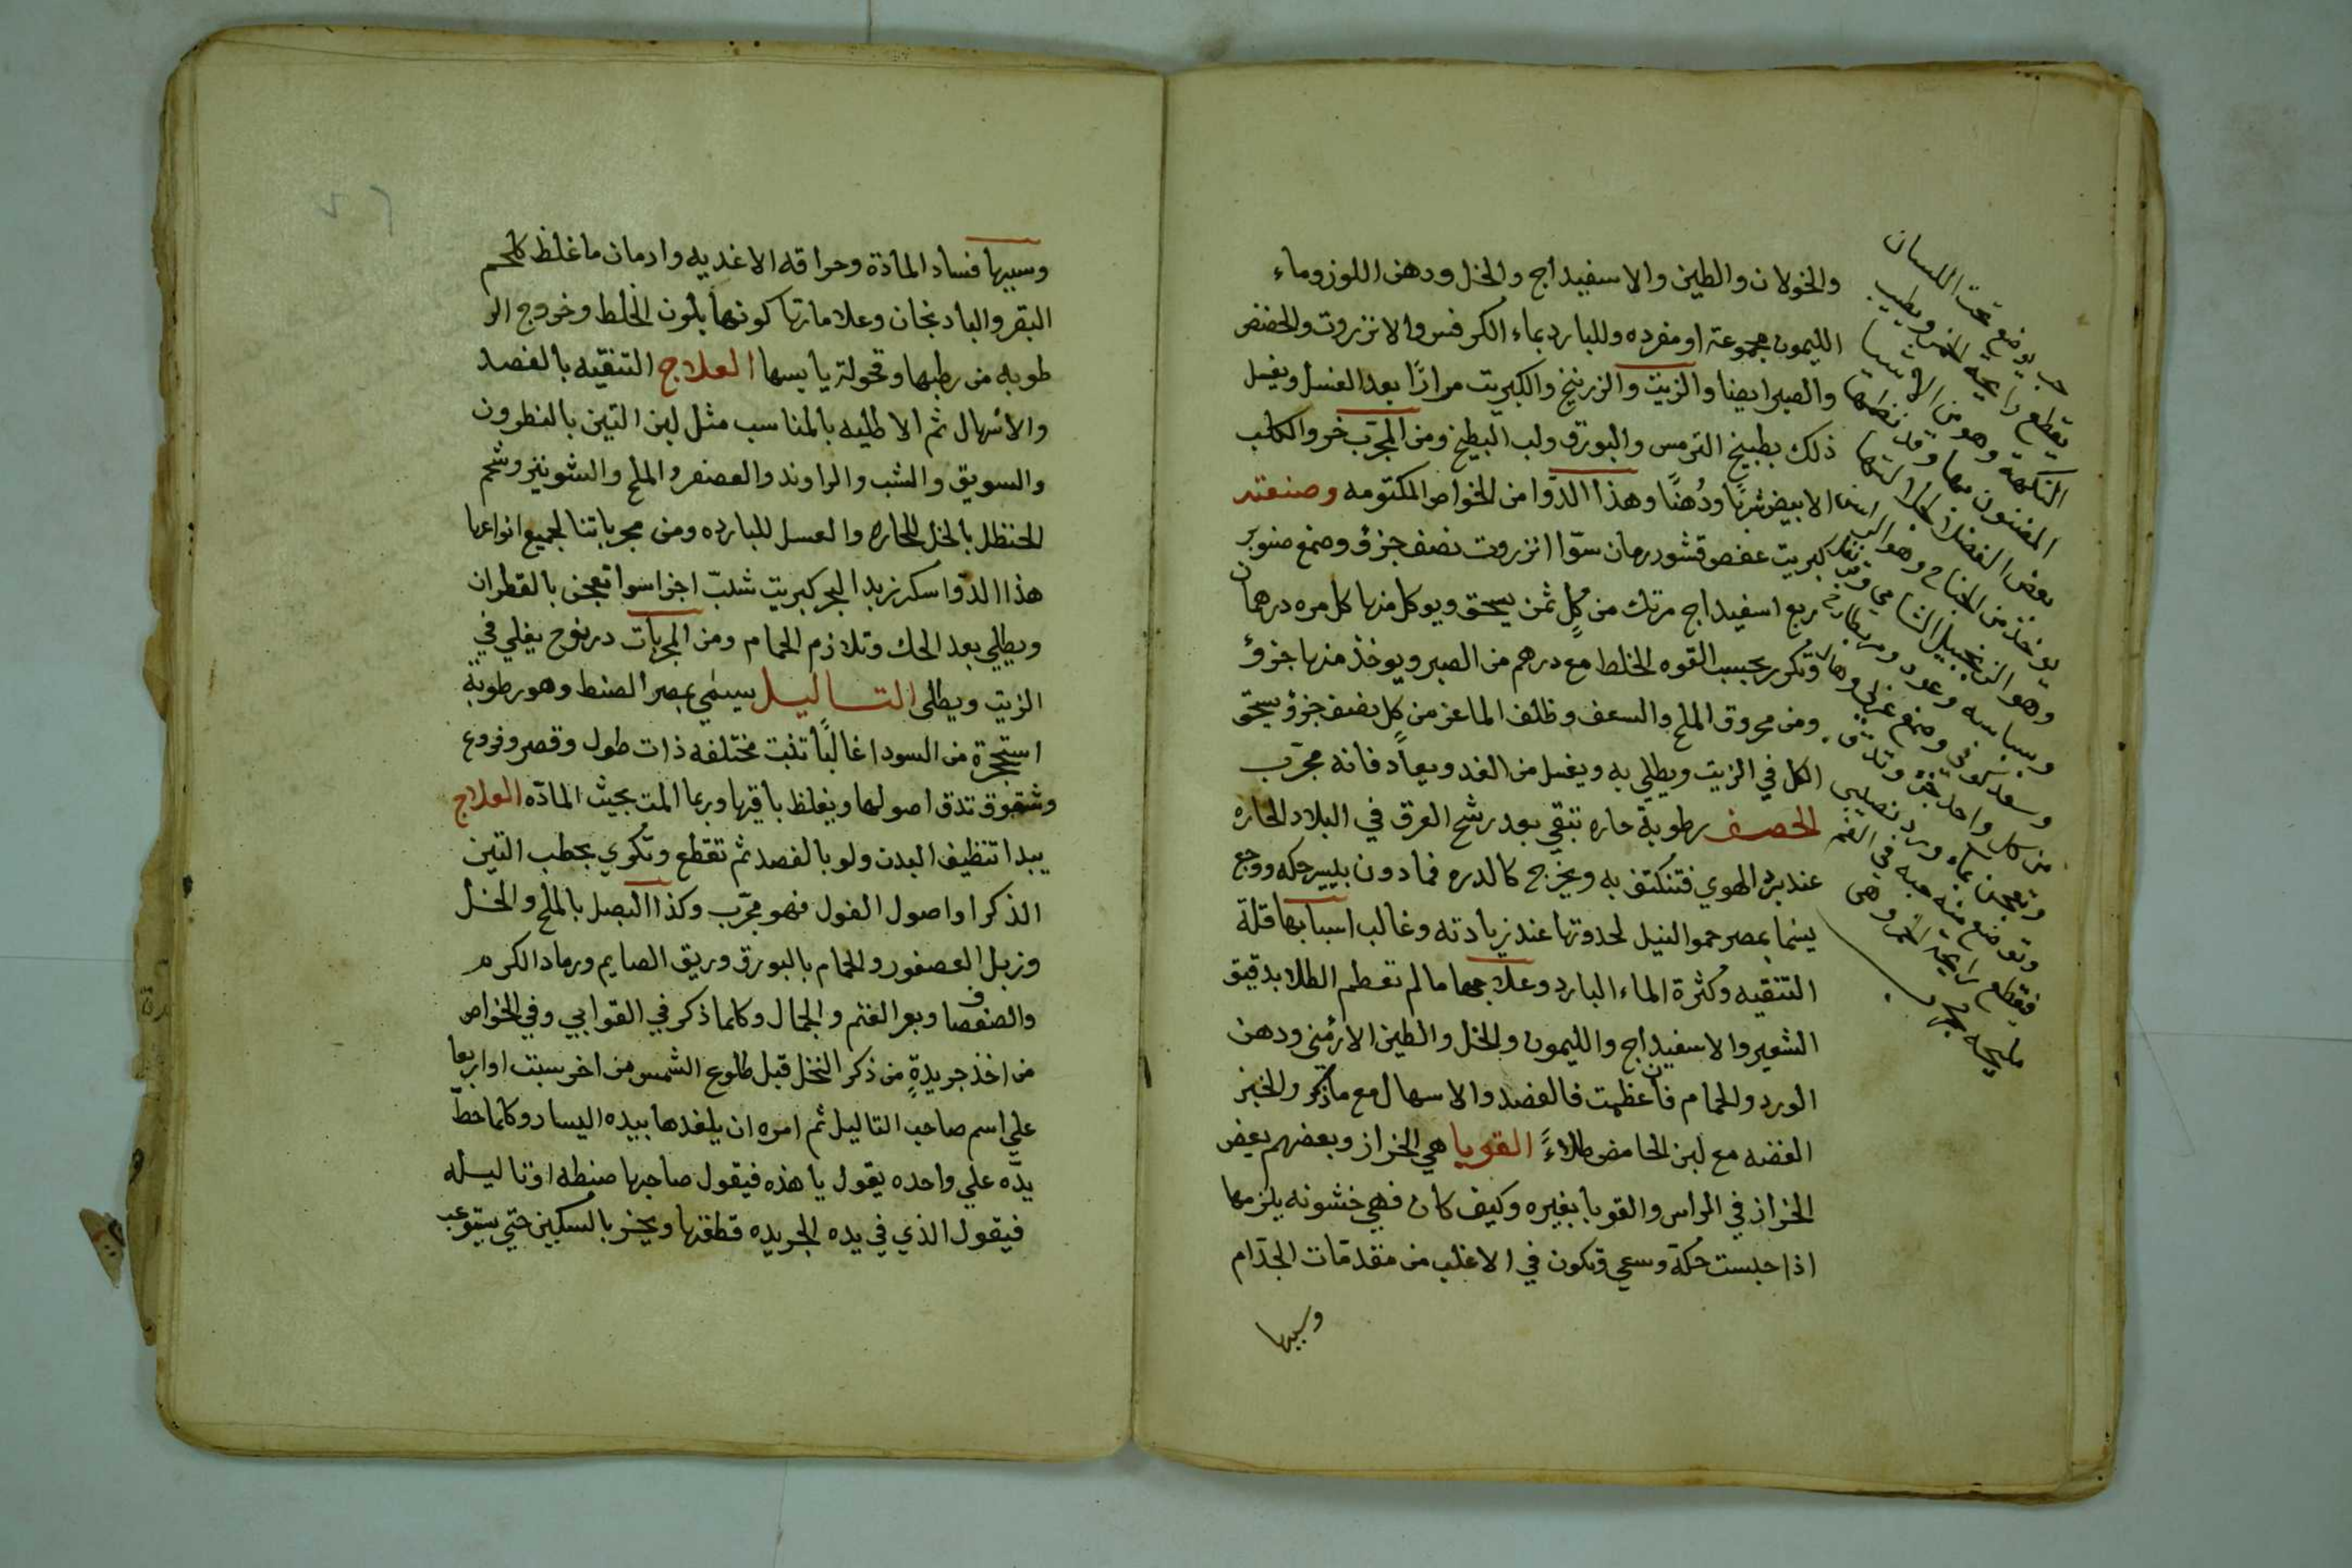 والخولان والطين والاسفيداج والخل ودهن اللوز وماء
الليمون مجموعة او مفرده وللبارد بماء الكرفس والانزروت والحضض
والصبر ايضا والزيت والزرنيخ والكبريت مرارًا بعد الغسل ويغسل
ذلك بطبيخ الترمس والبورق ولب البطيخ ومن المجرّب خرو الكلب
الابيض شربًا ودُهنًا وهذا الدّوا من الخواص المكتومه وصنعته
كبريت عفص قشور رمان سوّا انزروت نصف جزؤ وصمغ صنوبر
ربع اسفيداج مرتك من كلٍ ثمن يسحق ويوكل منها كل مره درهمان
وتكرر بحسب القوه الخلط مع درهم من الصبر ويوخذ منها جزؤ
ومن محروق الملح والسعف وظلف الماعز من كل نصف جزؤ يسحق
الكل في الزيت ويطلي به ويغسل من الغد ويعاد فانه مجرّب
الحصف رطوبة حاره تبقي بعد رشح العرق في البلاد الحاره
عند برد الهوي فتنكثف به ويخرج كالدره فما دون بيسير حكه ووجع
يسما بمصر حمو النيل لحدوثها عند زيادته وغالب اسبابها قلة
التنقيه وكثرة الماء البارد وعلاجها ما لم تعظم الطلا بدقيق
الشعير والاسفيداج والليمون والخل والطين الارمني ودهن
الورد والحمام فان عظمت فالفصد والاسهال مع ماذكر والخبز
الفضه مع لبن الحامض طلاءً القوبا هي الخزاز وبعضهم يعض
الخزاز في الراس والقوبا بغيره وكيف كان فهي خشونه يلزمها
اذا حبست حكة وسعي وتكون في الاغلب من مقدمات الجذام
وسببها
حب يوضع تحت اللسان
يقطع رايحة الخمر ويطيب
النكهة وهو من الاشيا
المضنون بها وقد نظمها
بعض الفضلا
يوخذ من الجناح وهو الراسن
وهو الزنجبيل الشامي وقرنفل
وبسباسه وعود
وسعد كوفي وصمغ عربي وهال
من كل واحد جزء وتدق
وتعجن بماء ورد نصيبي
وتوضع منه حبه في الفم
فيقطع رايحة الخمر وهي
مليحه مجرب
وسببها فساد المادّة وحراقه الاغديه وادمان ما غلظ كلحم
البقر والبادنجان وعلاماتها كونها بلون الخلط وخروج الر
طوبه من رطبها وقحولة يابسها العلاج التنقيه بالفصد
والأسهال ثم الاطليه بالمناسب مثل لبن التين بالنطرون
والسويق والشب والراوند والعصفر والملح والشونيز وشحم
الحنظل بالخل للحاره والعسل للبارده ومن مجرباتنا لجميع انواعها
هذا الدّوا سكر زبد البحر كبريت شبّ اجزا سوا تعجن بالقطران
ويطلي بعد الحك وتلازم الحمام ومن المجربات درنوح يغلي في
الزيت ويطلى التــاليــل سيمي بمصر الصنط وهو رطوبة
استحجرة من السودا غالبًا تنبت مختلفه ذات طول وقصر وفروع
وشقوق تدق اصولها ويغلظ باقيها وربما المت بحيث المادّه العلاج
يبدا تنظيف البدن ولو بالفصد ثم تقطع وتكوي بحطب التين
الذكر او اصول الفول فهو مجرّب وكذا البصل بالملح والخل
وزبل العصفور والحمام بالبورق وريق الصايم ورماد الكرم
والصفصاف وبعر الغنم والجمال وكلما ذكر في القوابي وفي الخواص
من اخذ جريدةٍ من ذكر النخل قبل طلوع الشمس من اخر سبت او اربعا
علي اسم صاحب التاليل ثم امره ان يلفدها بيده اليسار وكلما حطّ
يدّه علي واحده يقول يا هذه فيقول صاحبها صنطه او تاليله
فيقول الذي في يده الجريده قطفتها ويحز بالسكين حتي يستوعب